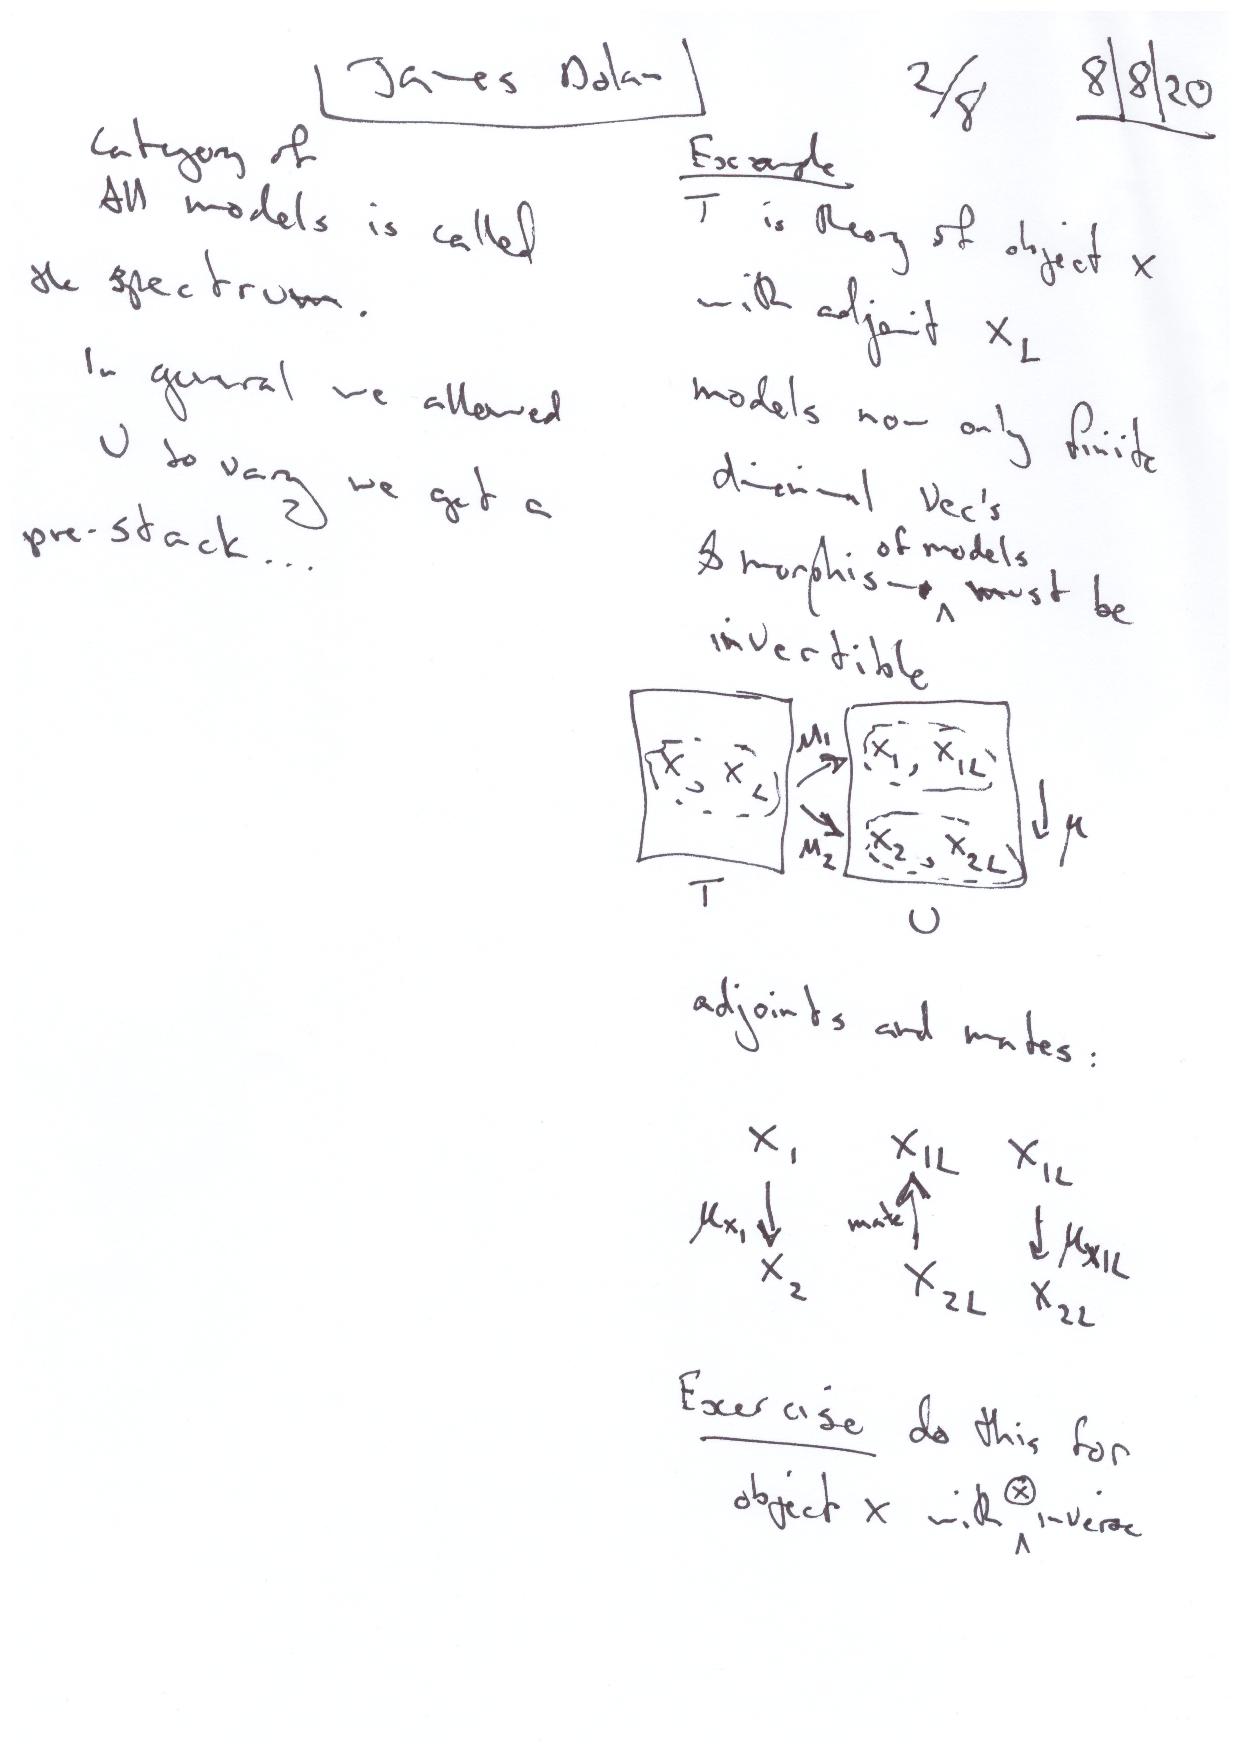 James Dolan
2/8
8/8/20
Category of
All models is called
the spectrum.
In general we allowed
U to vary we get a
pre-stack...
Example
T is theory of object x
with adjoint x_L
models now only finite
dimensional Vec's
& morphisms of models must be
invertible
x, x_L
T
M_1
M_2
x_1, x_1L
x_2, x_2L
U
μ
adjoints and mates:
x_1 x_1L x_1L
μ_x_1 mate μ_x1L
x_2 x_2L x_2L
Exercise do this for
object x with ⊗ inverse